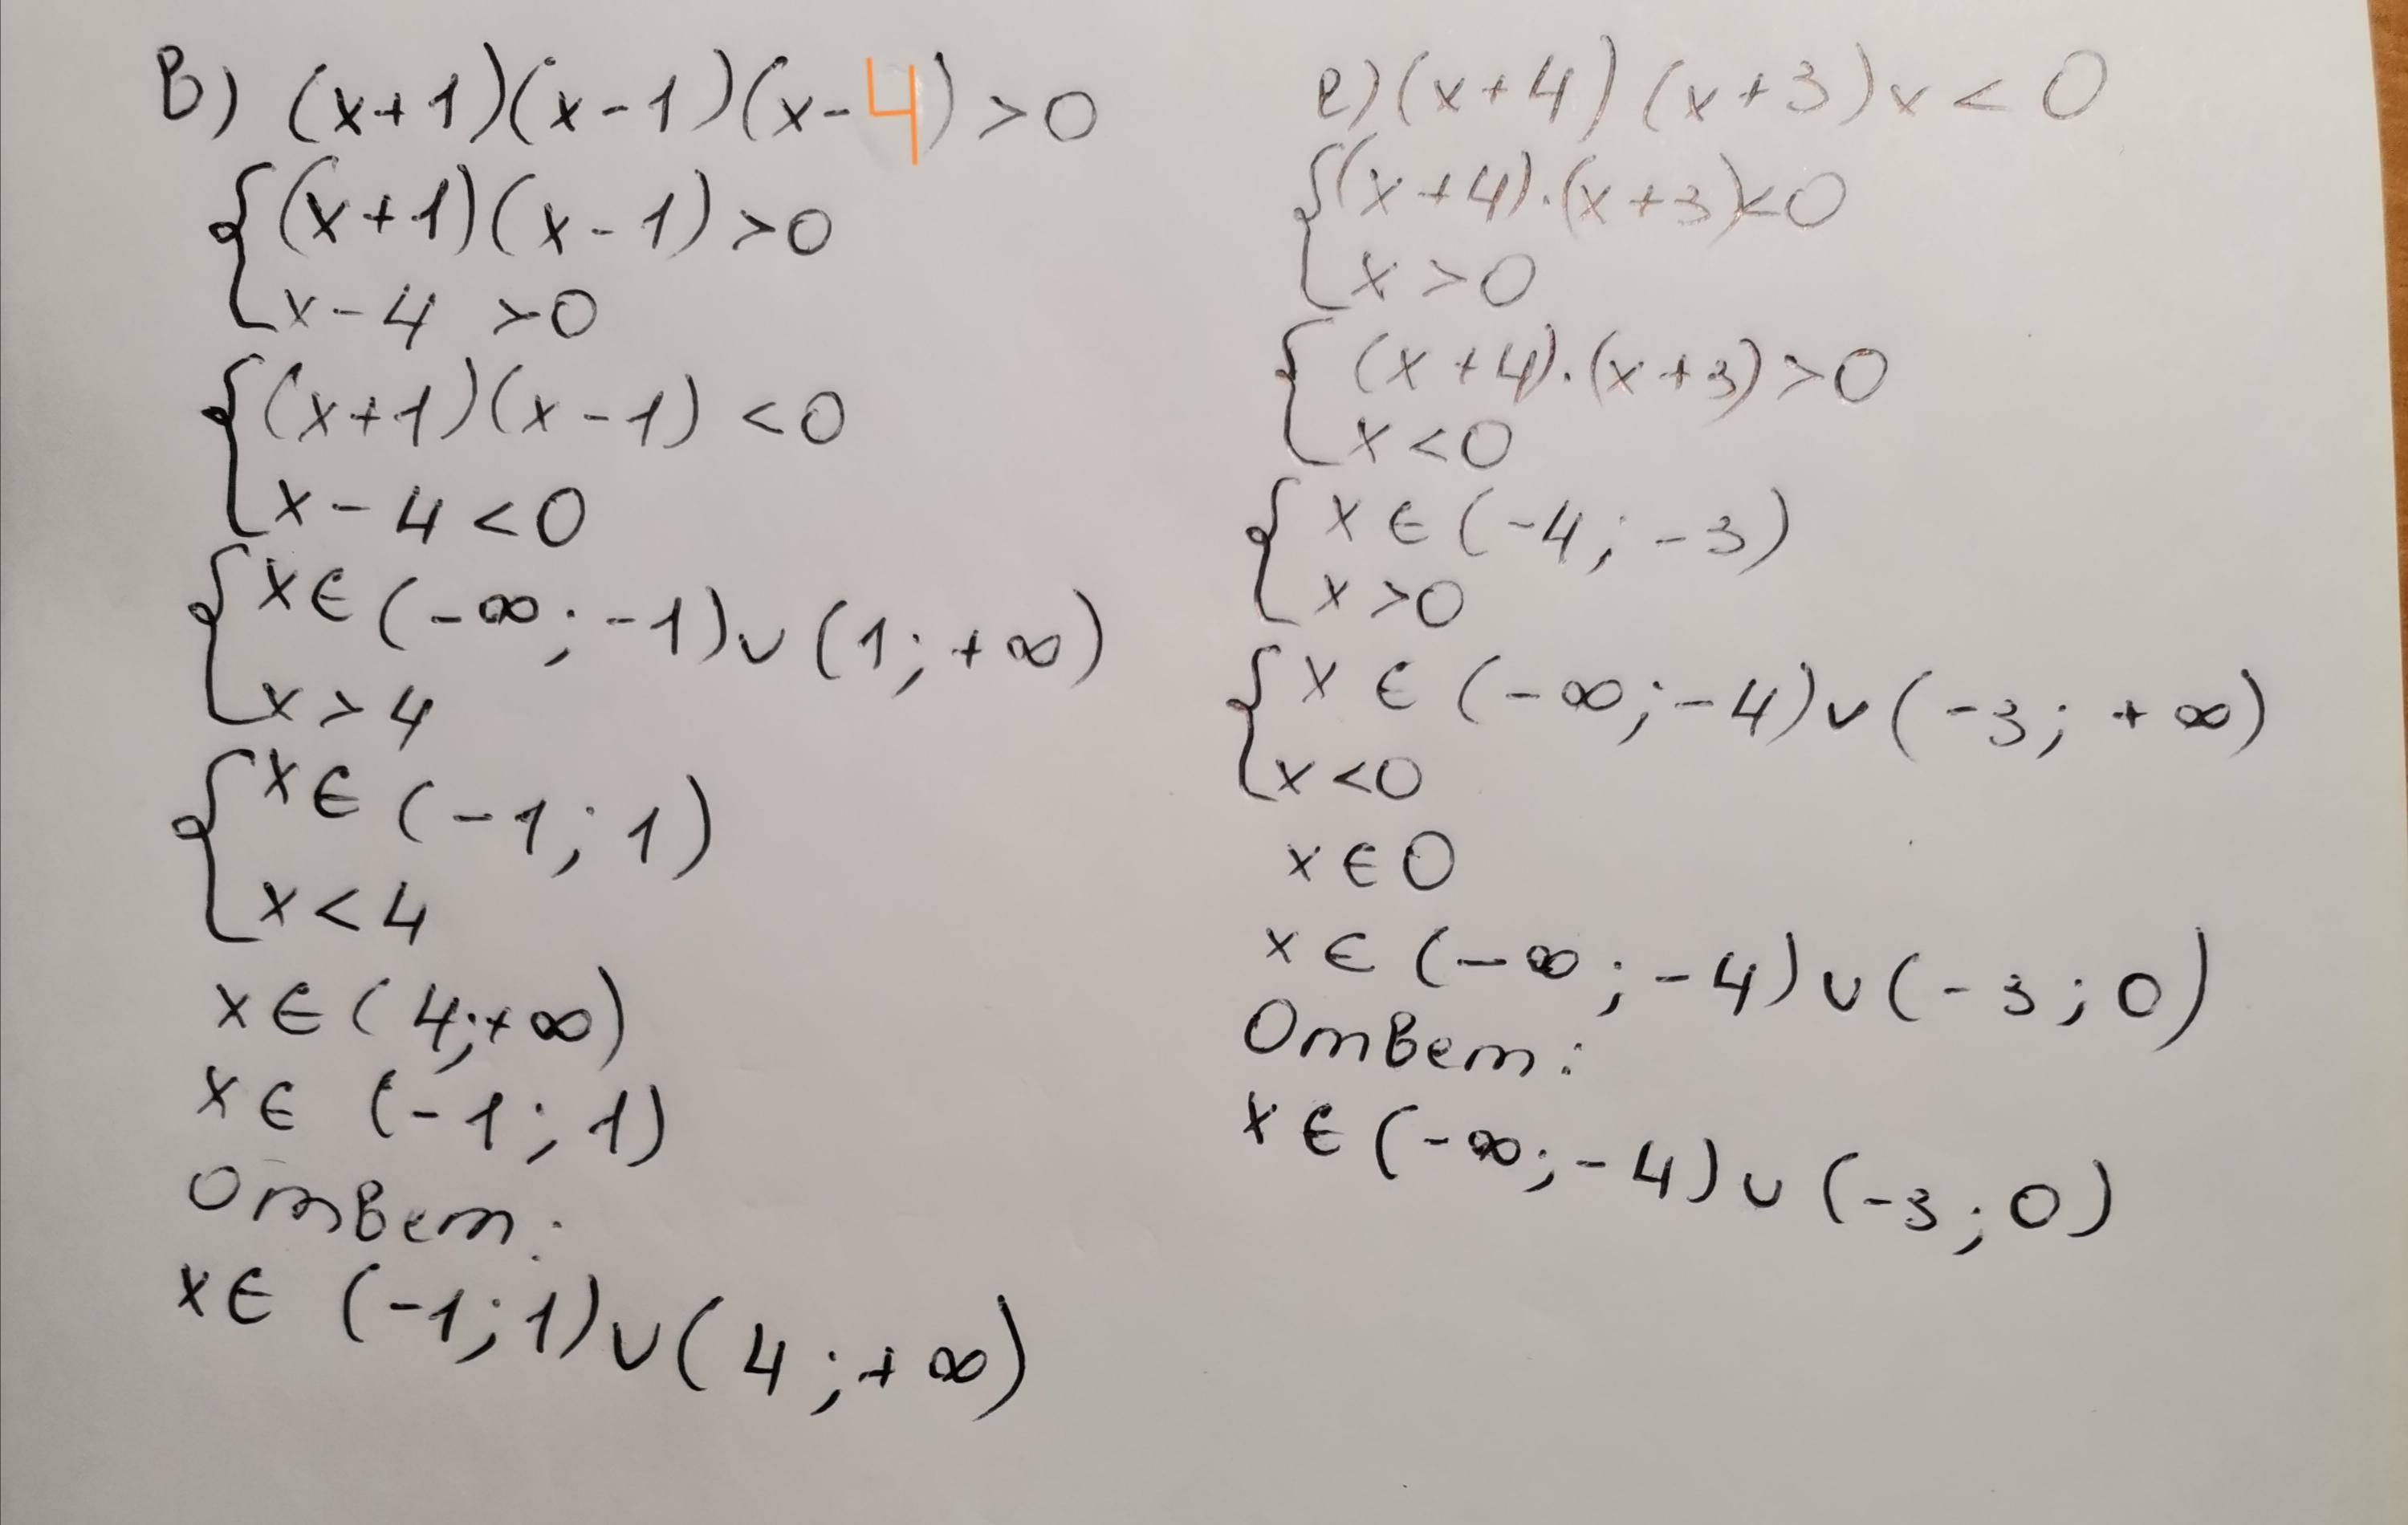 в) (x+1)(x-1)(x-4) >0
{(x+1)(x-1) >0
x-4 >0
{(x+1)(x-1) <0
x-4<0
{x∈(-∞;-1)∪(1;+∞)
x>4
{x∈(-1;1)
x<4
x∈(4;+∞)
x∈(-1;1)
Ответ:
x∈(-1;1)∪(4;+∞)
е)(x+4)(x+3)x<0
{(x+4)·(x+3)<0
x>0
{(x+4)·(x+3)>0
x<0
{x∈(-4;-3)
x>0
{x∈(-∞;-4)∪(-3;+∞)
x<0
x∈0
x∈(-∞;-4)∪(-3;0)
Ответ:
x∈(-∞;-4)∪(-3;0)